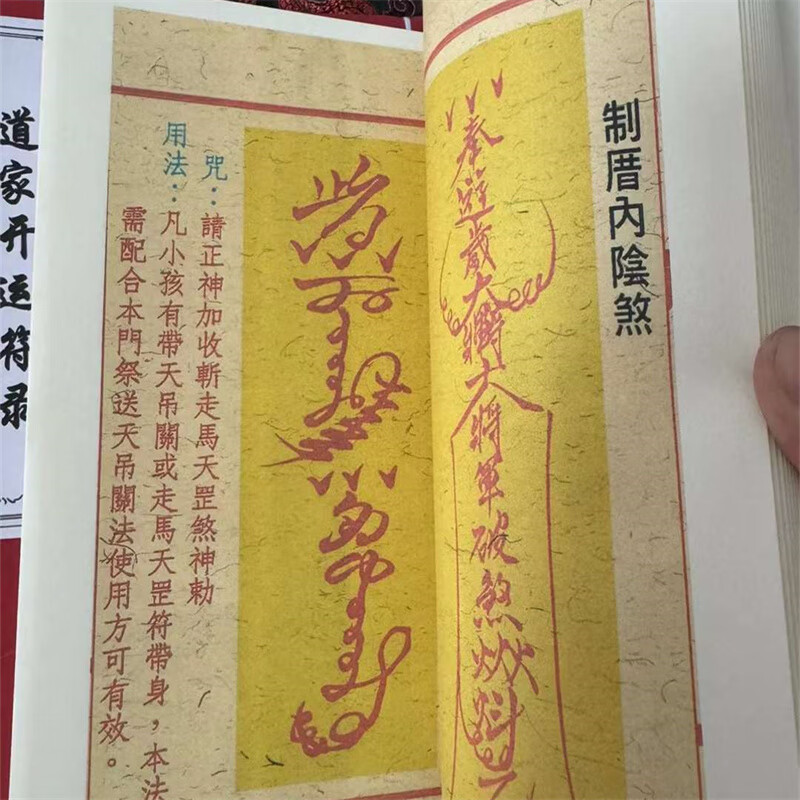 制厝內陰煞
奉 歲大將大將軍破煞
咒：請正神加收斬走馬天罡煞神勅
用法：凡小孩有帶天吊關或走馬天罡符帶身，本法
需配合本門祭送天吊關法使用方可有效。
道家开运符录